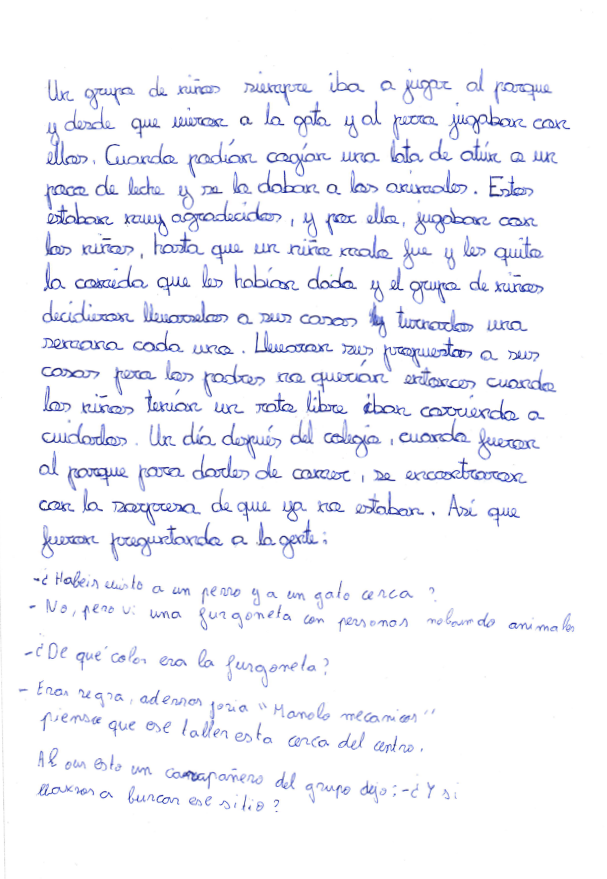 Un grupo de niños siempre iba a jugar al parque
y desde que vieron a la gata y al perro jugaban con
ellos. Cuando podían cogían una lata de atún o un
paco de leche y se lo daban a los animales. Estos
estaban muy agradecidos, y por ello, jugaban con
los niños, hasta que un niño malo fue y les quito
la comida que les habían dado y el grupo de niños
decidieron llevarselos a sus casas y turnados una
semana cada uno. Llevaron sus propuestas a sus
casas pero los padres no querían entonces cuando
los niños tenían un rato libre iban corriendo a
cuidarlos. Un día después del colegio, cuando fueron
al parque para darles de comer, se encontraron
con la sorpresa de que ya no estaban. Así que
fueron preguntando a la gente:
-¿Habeis visto a un perro y a un gato cerca?
- No, pero vi una furgoneta con personas robando animales
-¿De qué color era la furgoneta?
- Eras negra, ademas ponia "Manolo mecanicos"
piense que ese taller esta cerca del centro.
Al oir esto un compañero del grupo dejo: -¿Y si
vamos a buscar ese sitio?